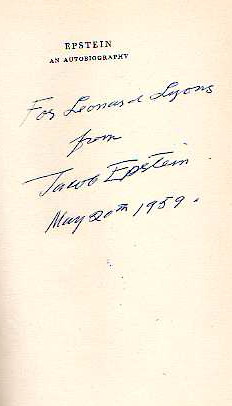 EPSTEIN
AN AUTOBIOGRAPHY
For Leonard Lyons
from
Jacob Epstein.
May 20th 1959.